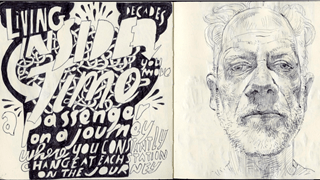 LIVING DECADES
INSIDE
TIMO
YOU KNOW
a passenger
on a journey
where you CONSTANTLY
CHANGE AT EACH STATION
ON THE JOURNEY